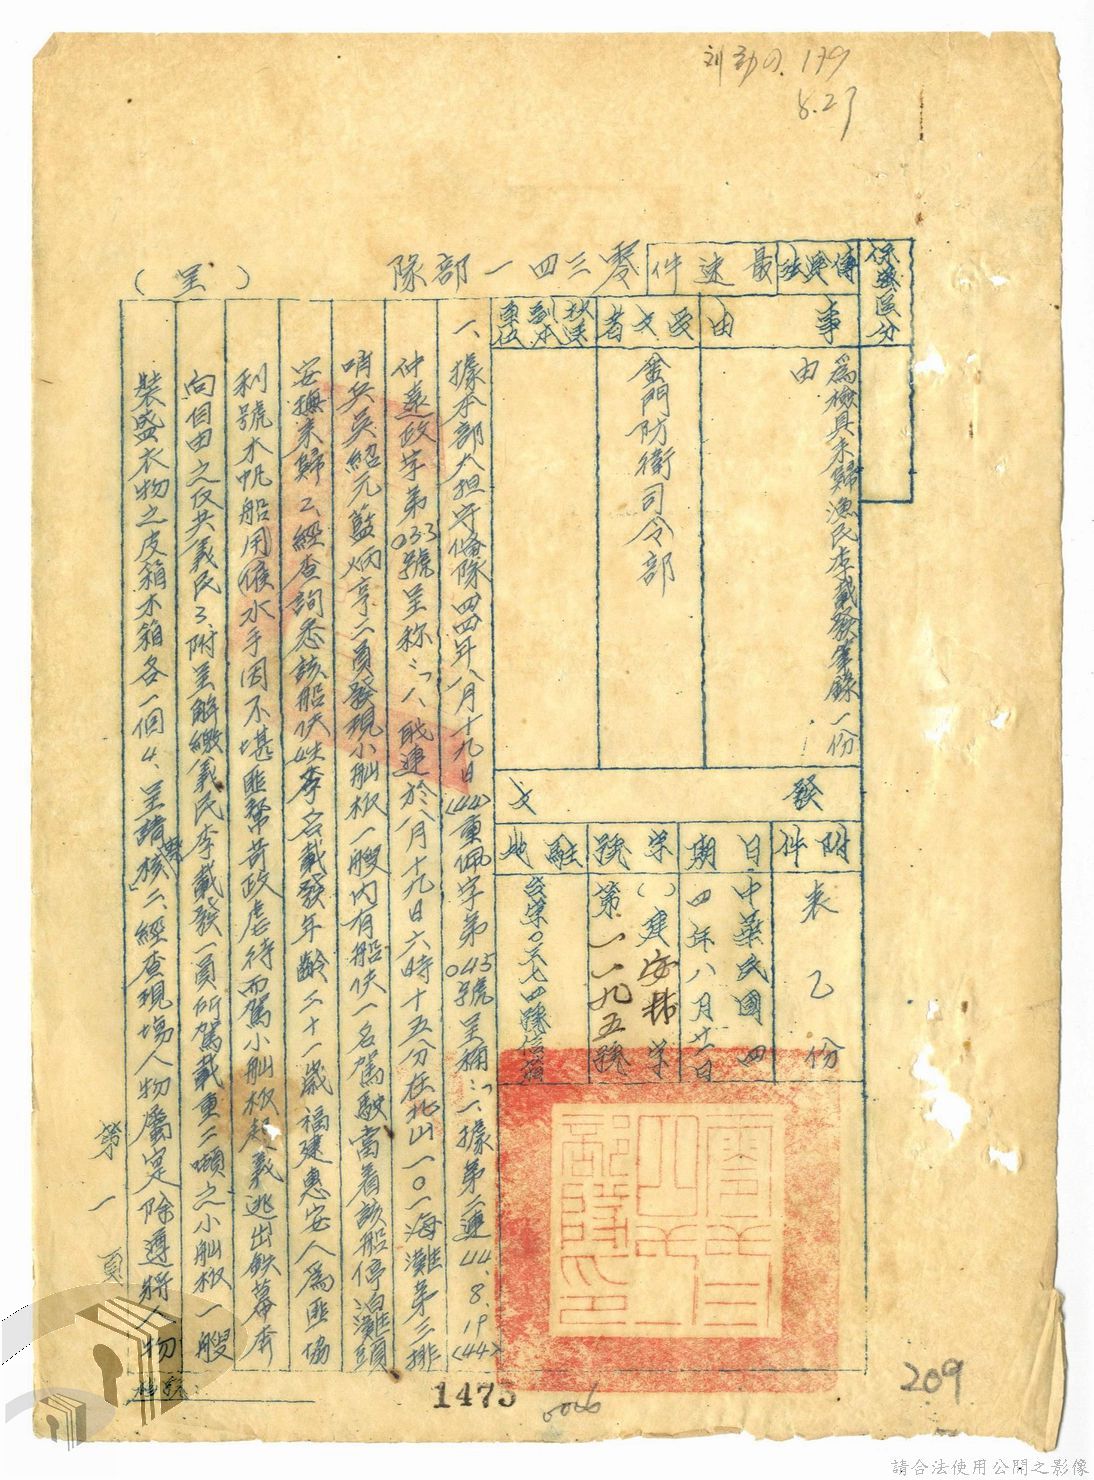 刘劲の. 179
8.27
保密區分
傳遞法
最速件
零三四一部隊
（呈）
事由
為檢具來歸漁民李戴發筆錄一份由
受文者
金門防衛司令部
副本
單位
發文
附件
表乙份
日期
中華民國四四年八月廿一日
字號
（）建安
第一一九五號
駐地
一、據本部大担守備隊四四年八月十九日(44)重佩字第045號呈稱:「一、據第二連44.8.19(44)
仲遠政字第033號呈称:「八、職連於八月十九日六時十五分在北山一〇一海灘第三排
哨兵吳紹元藍炳亨二員發現小舢板一艘內有船伕一名駕駛當着該船停泊灘頭
安撫來歸2.經查詢悉該船伕姓李名戴發年齡二十一歲福建惠安人為匪協
利號木帆船用僱水手因不堪匪幫苛政虐待而駕小舢板起義逃出鉄幕奔
向自由之反共義民3.附呈解繳義民李戴發一員所駕載重二噸之小舢板一艘
裝盛衣物之皮箱木箱各一個4.呈請核」二、經查現場人物屬實除遵將人物
第一頁
檔號:
1475
0016
209
請合法使用公開之影像